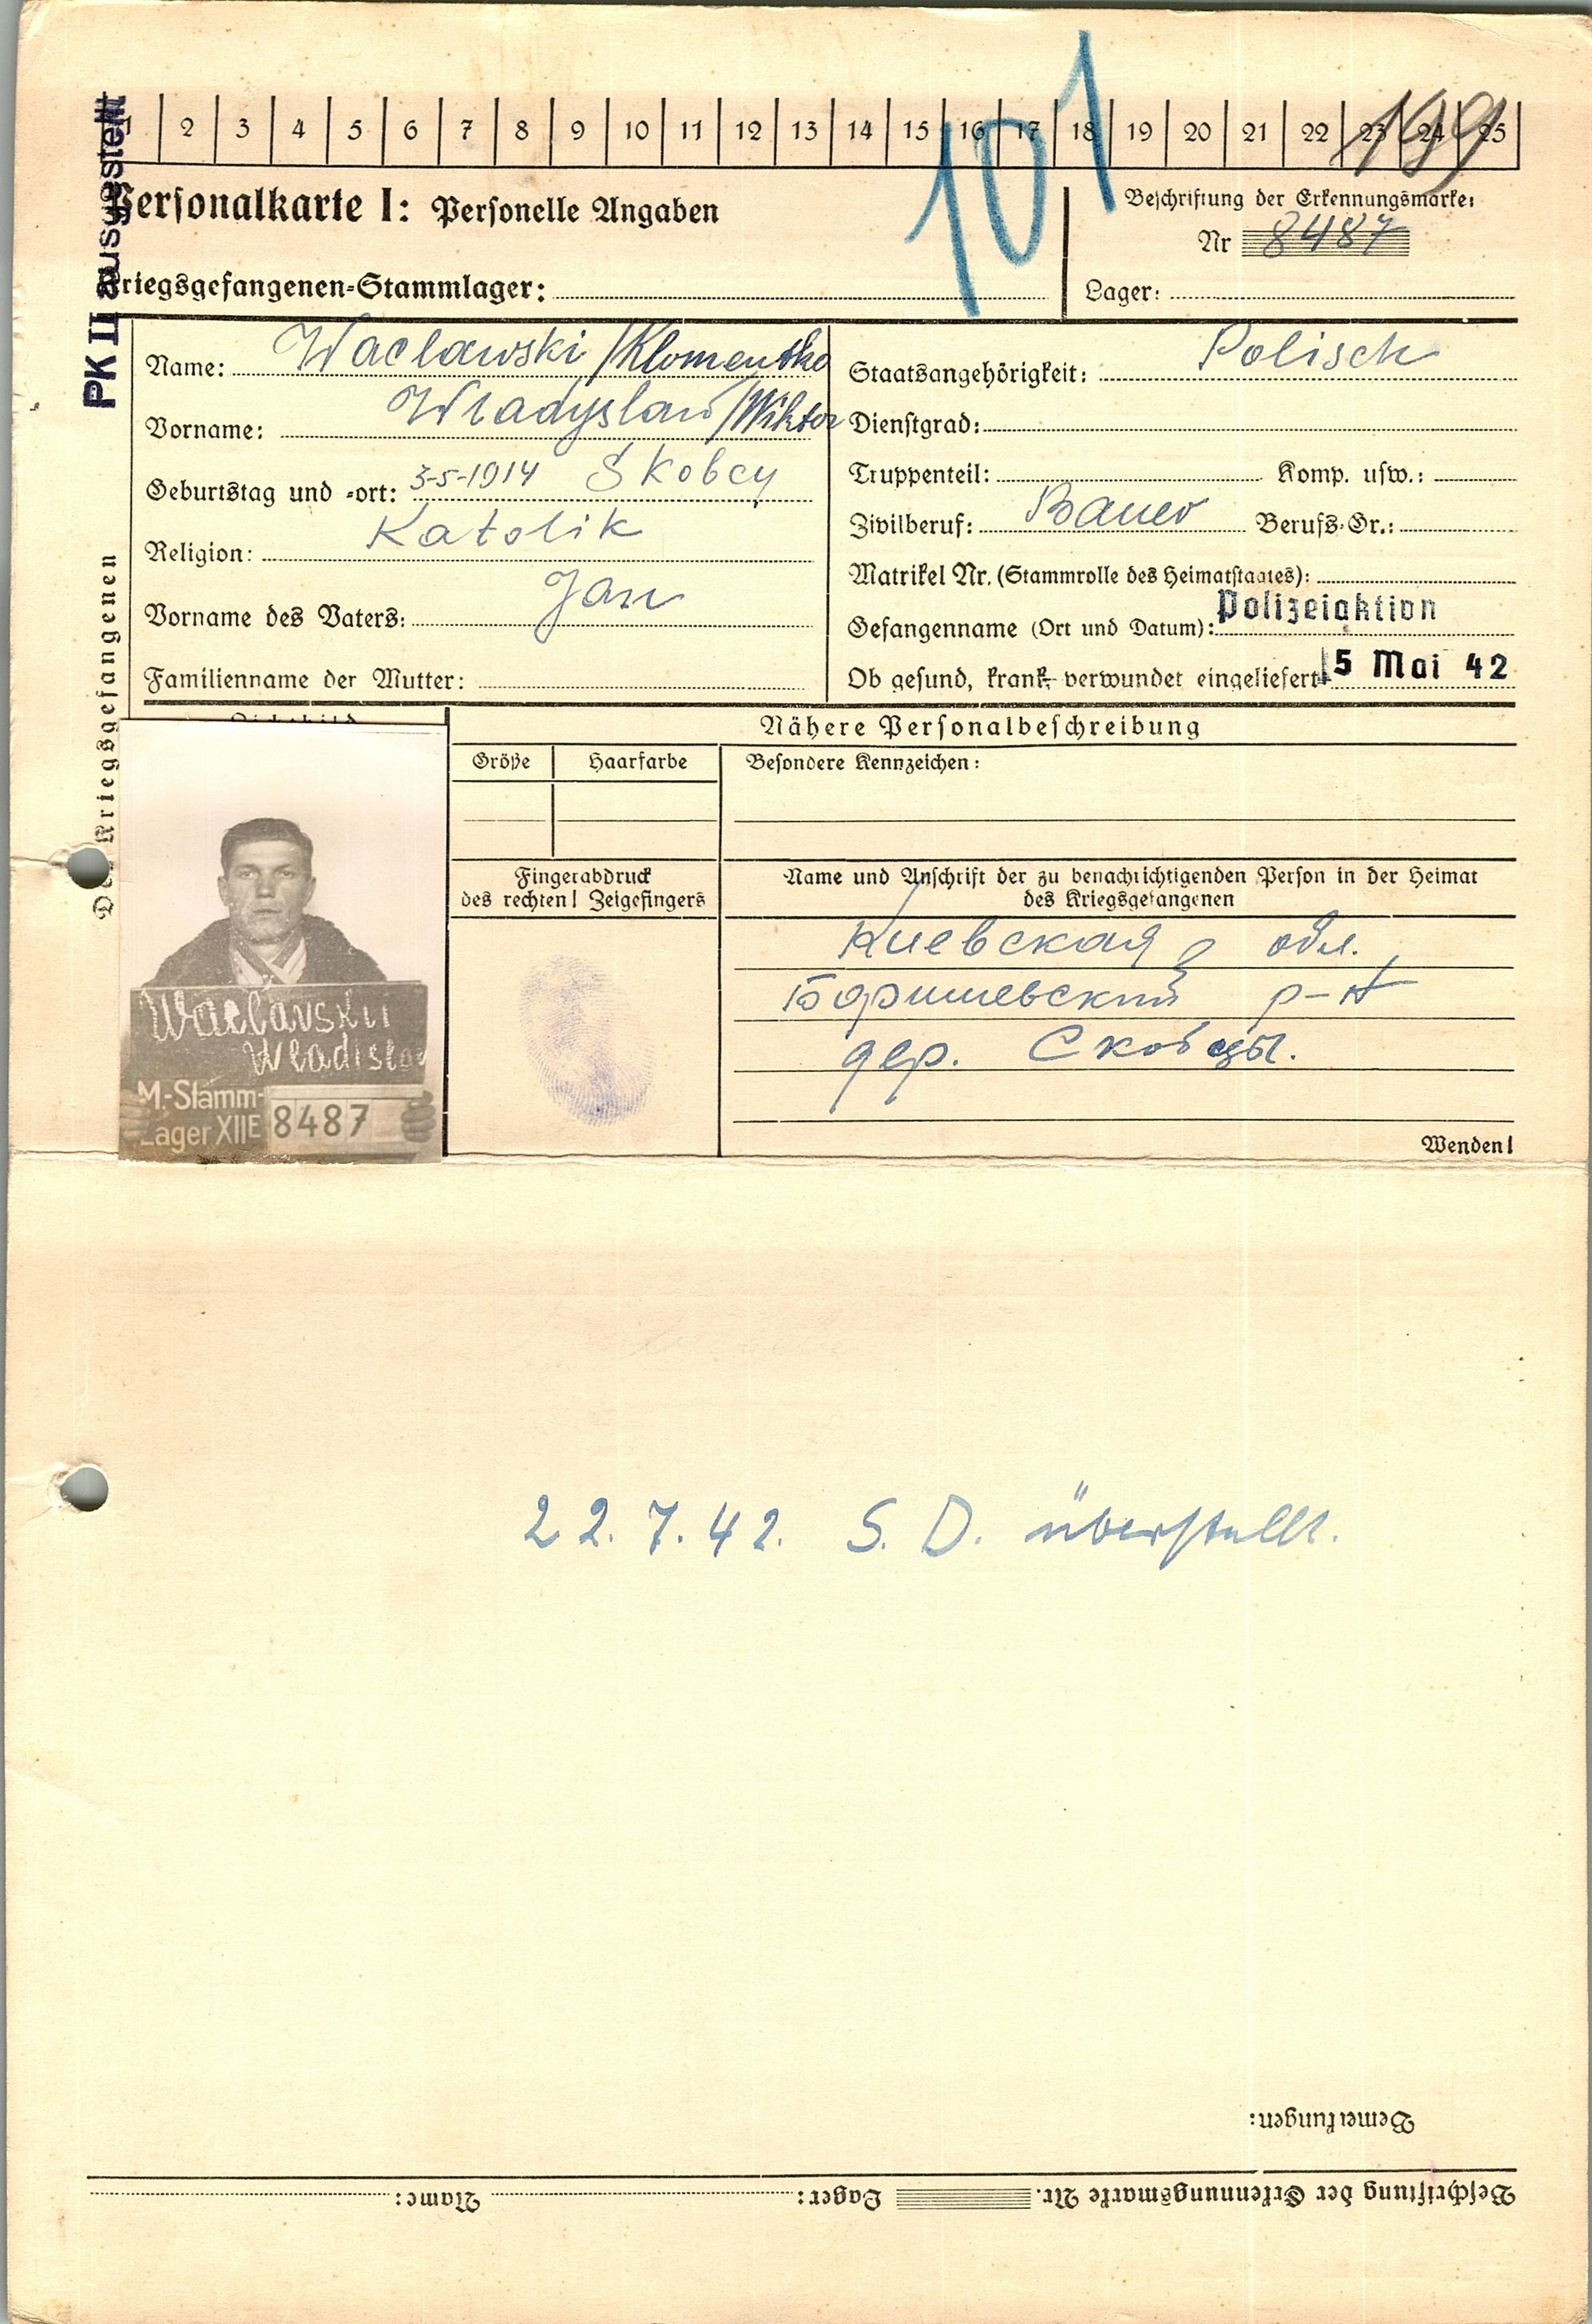 101
199
PK II ausgestellt
1 2 3 4 5 6 7 8 9 10 11 12 13 14 15 16 17 18 19 20 21 22 23 24 25
Personalkarte I: Personelle Angaben
Beschriftung der Erkennungsmarke:
Nr 8487
Kriegsgefangenen-Stammlager:
Lager:
Name: Waclawski /Klomentko
Vorname: Wladyslaw /Wiktor
Geburtstag und -ort: 3-5-1914 Skobcy
Religion: Katolik
Vorname des Vaters: Jan
Familienname der Mutter:
Staatsangehörigkeit: Polisch
Dienstgrad:
Truppenteil: Komp. usw.:
Zivilberuf: Bauer Berufs-Gr.:
Matrikel Nr. (Stammrolle des Heimatstaates):
Gefangenname (Ort und Datum): Polizeiaktion
Ob gesund, krank, verwundet eingeliefert 15 Mai 42
Des Kriegsgefangenen
Lichtbild
Waclavskii
Wladislav
M.-Stamm-
Lager XIIE 8487
Nähere Personalbeschreibung
Größe Haarfarbe Besondere Kennzeichen:
Fingerabdruck
des rechten! Zeigefingers
Name und Anschrift der zu benachrichtigenden Person in der Heimat
des Kriegsgefangenen
Киевская обл.
р-н
дер. Скобцы.
Wenden!
22.7.42. S.D. überstellt.
Bemerkungen:
Beschriftung der Erkennungsmarke Nr. Lager: Name: